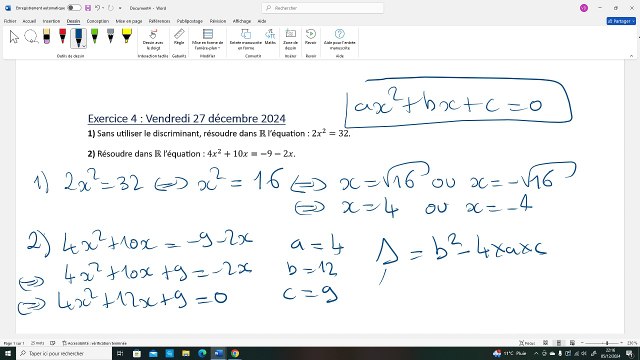 Enregistrement automatique
Document4 - Word
Rechercher
Fichier Accueil Insertion Dessin Conception Mise en page Références Publipostage Révision Affichage Aide
Dessiner avec le doigt
Règle
Mise en forme de l'arrière-plan
Entrée manuscrite en forme
Maths
Zone de dessin
Revoir
Aide pour l'entrée manuscrite
Outils de dessin
ax²+bx+c=0
Exercice 4 : Vendredi 27 décembre 2024
1) Sans utiliser le discriminant, résoudre dans ℝ l'équation : 2x² = 32.
2) Résoudre dans ℝ l'équation : 4x² + 10x = −9 − 2x.
1) 2x²=32 ⟺ x²=16 ⟺ x=√16 ou x=-√16
⟺ x=4 ou x=-4
2) 4x²+10x=-9-2x a=4 Δ=b²-4×a×c
⟺ 4x²+10x+9=-2x b=12
⟺ 4x²+12x+9=0 c=9
Page 1 sur 1 25 mots Accessibilité : vérification terminée
Taper ici pour rechercher
11°C Pluie
22:16
05/12/2024